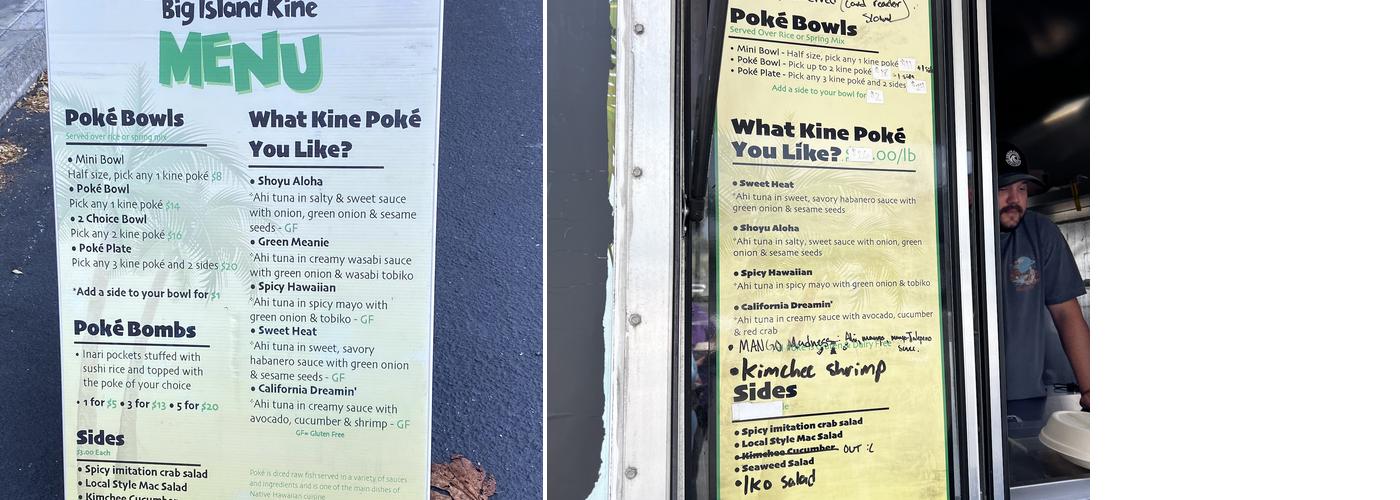 Big Island Kine
MENU
Poké Bowls
Served over rice or spring mix
• Mini Bowl
Half size, pick any 1 kine poké $8
• Poké Bowl
Pick any 1 kine poké $14
• 2 Choice Bowl
Pick any 2 kine poké $16
• Poké Plate
Pick any 3 kine poké and 2 sides $20
*Add a side to your bowl for $1
Poké Bombs
• Inari pockets stuffed with
sushi rice and topped with
the poke of your choice
• 1 for $5 • 3 for $13 • 5 for $20
Sides
$3.00 Each
• Spicy imitation crab salad
• Local Style Mac Salad
• Kimchee Cucumber
What Kine Poké
You Like?
• Shoyu Aloha
*Ahi tuna in salty & sweet sauce
with onion, green onion & sesame
seeds - GF
• Green Meanie
*Ahi tuna in creamy wasabi sauce
with green onion & wasabi tobiko
• Spicy Hawaiian
*Ahi tuna in spicy mayo with
green onion & tobiko - GF
• Sweet Heat
*Ahi tuna in sweet, savory
habanero sauce with green onion
& sesame seeds - GF
• California Dreamin'
*Ahi tuna in creamy sauce with
avocado, cucumber & shrimp - GF
GF= Gluten Free
Poké is diced raw fish served in a variety of sauces
and ingredients and is one of the main dishes of
Native Hawaiian cuisine
(card reader)
Slow!
Poké Bowls
Served Over Rice or Spring Mix
• Mini Bowl - Half size, pick any 1 kine poké
• Poké Bowl - Pick up to 2 kine poké +1 side
• Poké Plate - Pick any 3 kine poké and 2 sides
Add a side to your bowl for
What Kine Poké
You Like? .00/lb
• Sweet Heat
*Ahi tuna in sweet, savory habanero sauce with
green onion & sesame seeds
• Shoyu Aloha
*Ahi tuna in salty, sweet sauce with onion, green
onion & sesame seeds
• Spicy Hawaiian
*Ahi tuna in spicy mayo with green onion & tobiko
• California Dreamin'
*Ahi tuna in creamy sauce with avocado, cucumber
& red crab
• MANGO Madness- Ahi, mango, mayo Jalapeno
sauce.
• Kimchee shrimp
Sides
• Spicy imitation crab salad
• Local Style Mac Salad
• Kimchee Cucumber OUT :(
• Seaweed Salad
• Iko salad